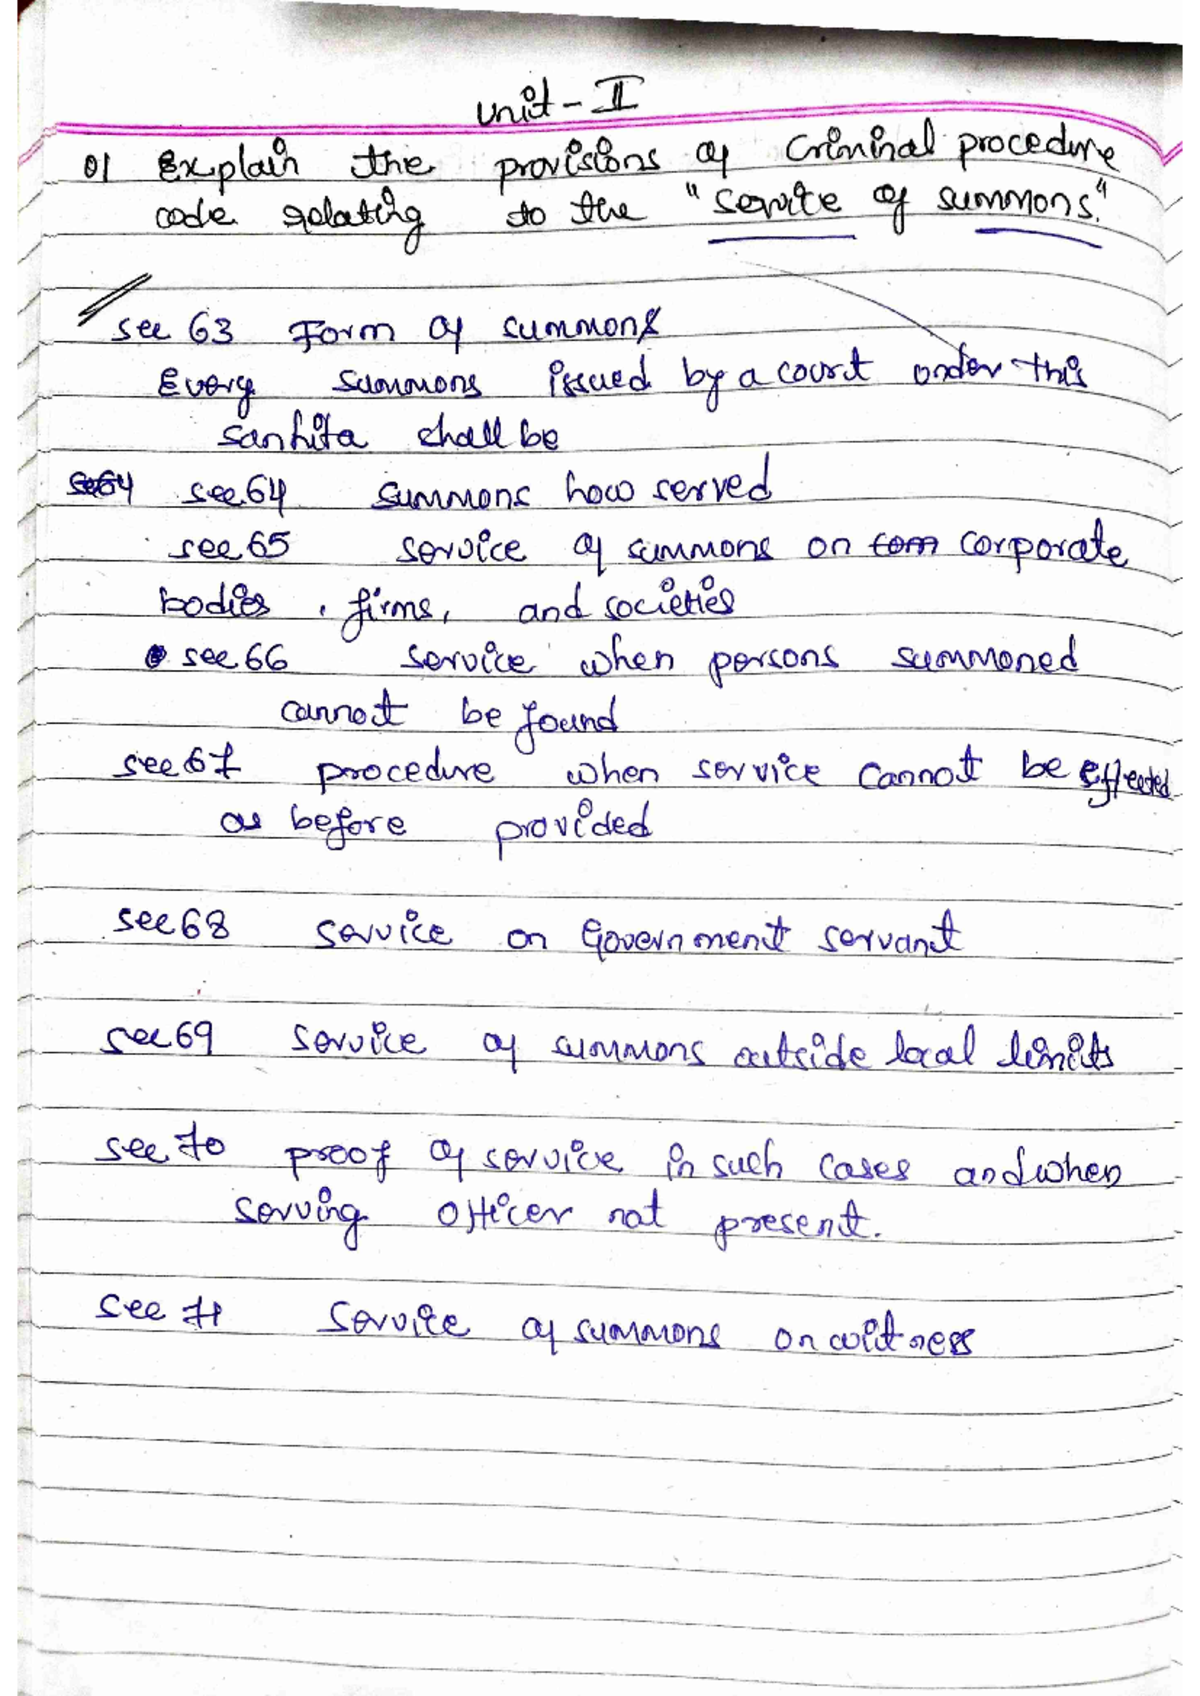 Unit - II
01 Explain the provisions of Criminal procedure
code relating to the "Service of summons."
sec 63 Form of summons
Every summons issued by a court under this
Sanhita shall be
sec64 sec 64 summons how served
sec 65 service of summons on com corporate
bodies, firms, and societies
sec 66 service when persons summoned
cannot be found
sec 67 procedure when service cannot be effected
as before provided
sec 68 service on Government servant
sec 69 service of summons outside local limits
sec 70 proof of service in such cases and when
serving officer not present.
sec 71 Service of summons on witness